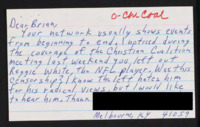 o-ChiCoal
Dear Brian,
Your network usually shows events
from beginning to end. I noticed during
the coverage of the Christian Coalition
meeting last weekend you left out
Reggie White, the NFL player. Was this
censorship? I know the left hates him
for his radical views, but I would like
to hear him. Thank
Melbourne, KY 41059